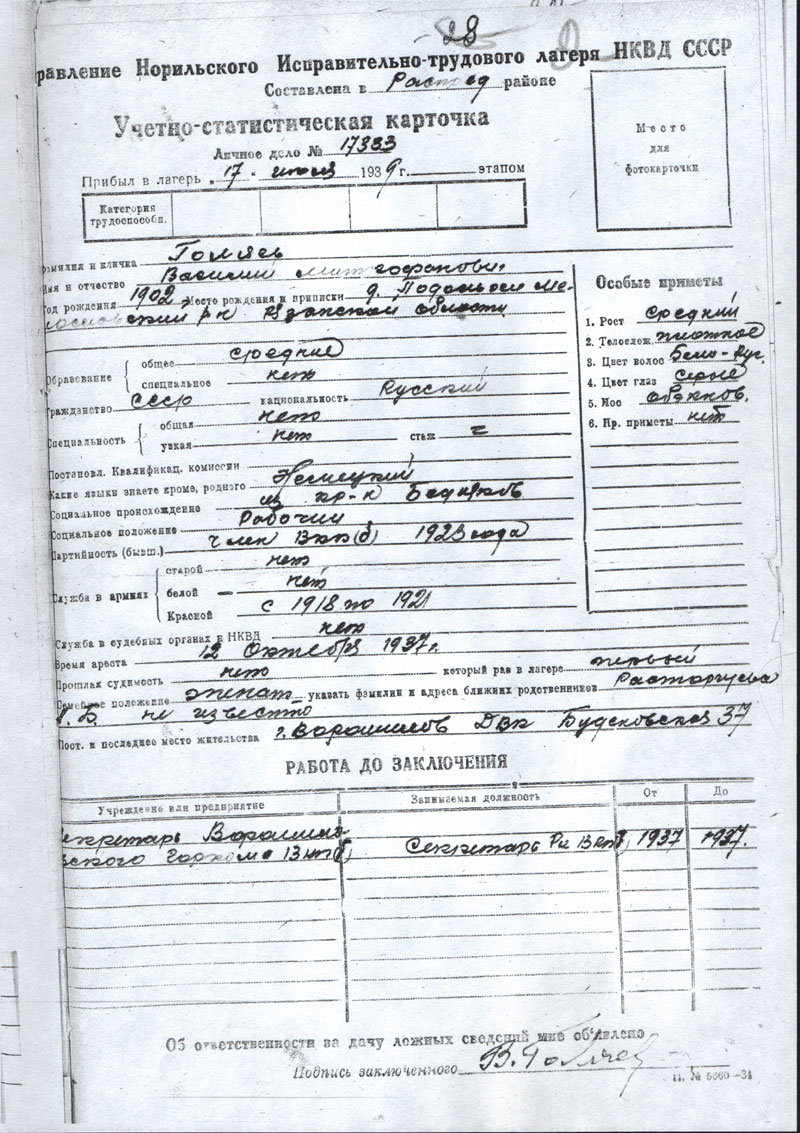 28
равление Норильского Исправительно-трудового лагеря НКВД СССР
Составлена в районе
Учетно-статистическая карточка
Личное дело № 17333
Прибыл в лагерь „17 1939 г. этапом
Место
для
фотокарточки
Категория
трудоспособн.
фамилия и кличка
Имя и отчество Василий Митрофанович
Год рождения 1902 Место рождения и приписки д.
р-н Рязанской области
Образование общее среднее
специальное нет
Гражданство СССР национальность Русский
Специальность общая нет
узкая нет стаж
Постановл. Квалификац. комиссии
Какие языки знаете кроме, родного Немецкий
Социальное происхождение из кр-н Бедняков
Социальное положение Рабочий
Партийность (бывш.) член Вкп(б) 1923 года
Служба в армиях старой нет
белой – нет
Красной с 1918 по 1921
Служба в судебных органах в НКВД нет
Время ареста 12 Октября 1937 г.
Прошлая судимость нет который раз в лагере первый
Семейное положение женат указать фамилии и адреса ближних родственников Расторгуева
не известно
Пост. и последнее место жительства г. Ворошилов ДВк 37
Особые приметы
1. Рост Средний
2. Телослож.
3. Цвет волос
4. Цвет глаз серые
5. Нос обыкнов.
6. Пр. приметы нет
РАБОТА ДО ЗАКЛЮЧЕНИЯ
Учреждение или предприятие Занимаемая должность От До
екретарь Ворошилов-
ского Горкома Вкп(б) Секретарь Вкп(б) 1937 1937.
Об ответственности за дачу ложных сведений мне объявлено
Подпись заключенного
П. № 5660—34